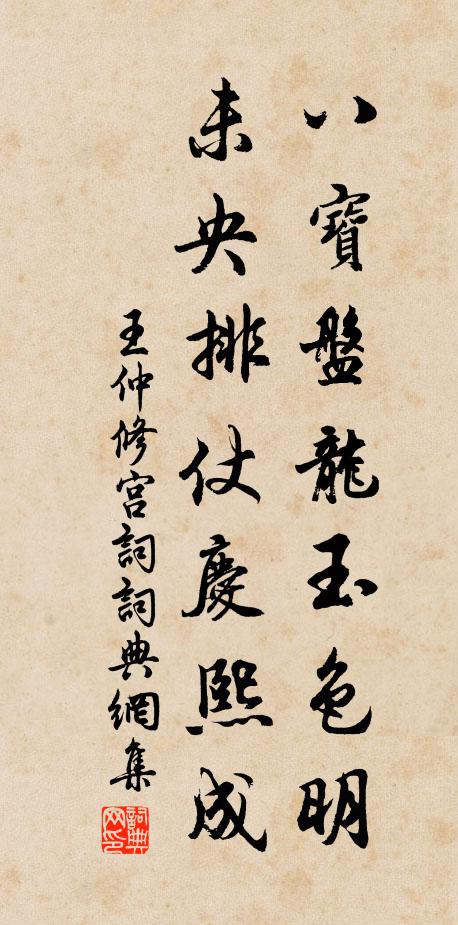 八寶盤龍玉色明
未央排仗慶熙成
王仲修宫詞詞典網集
詞典网印